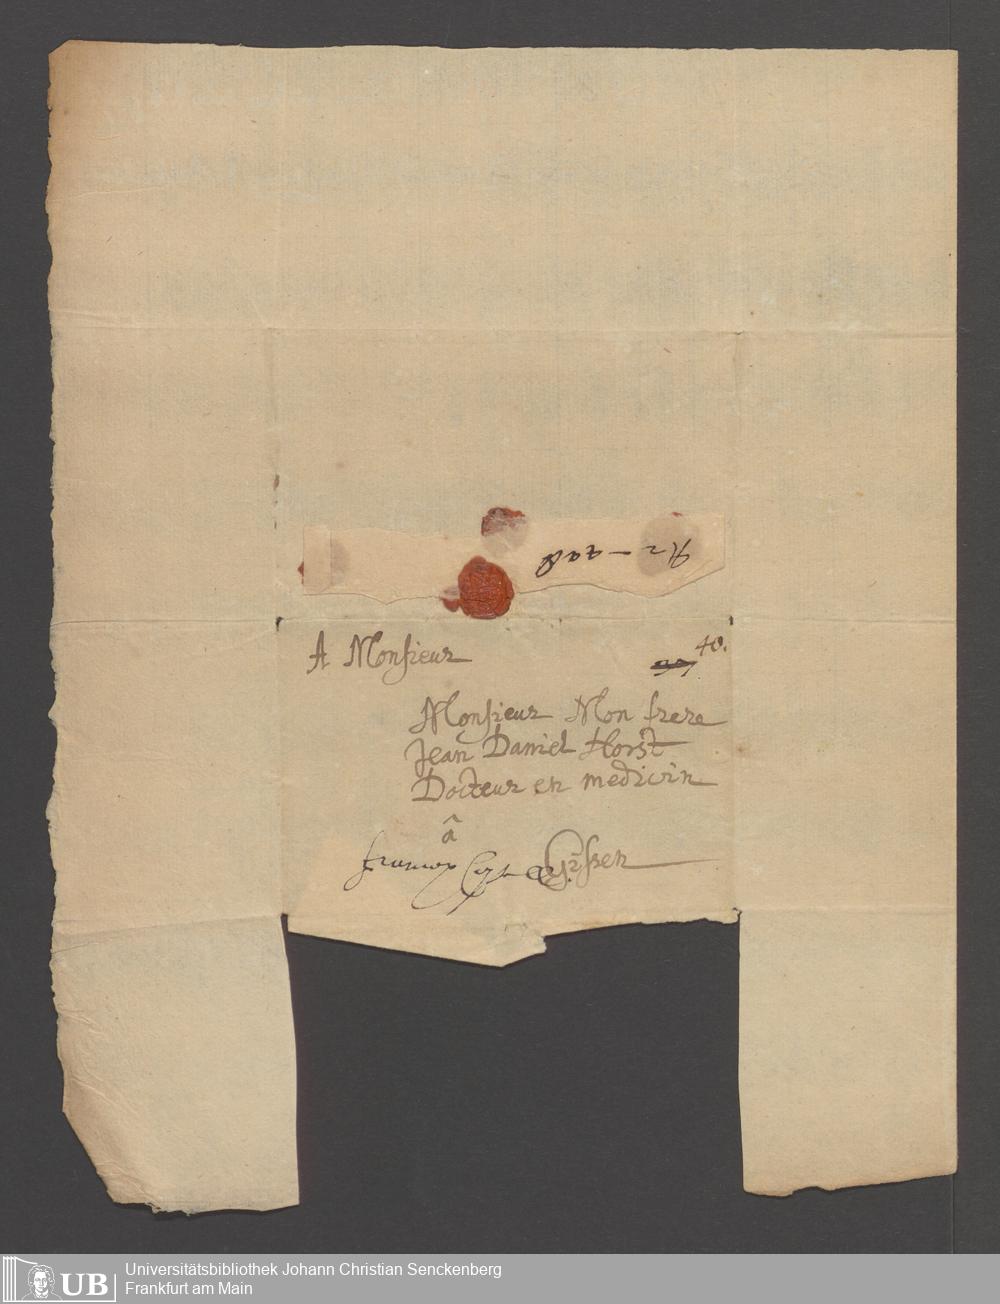 A Monsieur
40.
Monsieur Mon frere
Jean Daniel Horst
Docteur en medicin
â
Gissen
UB Universitätsbibliothek Johann Christian Senckenberg
Frankfurt am Main